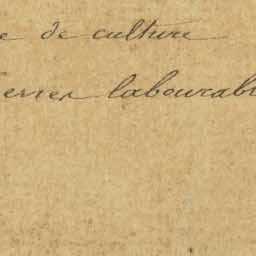 e de culture
erres labourabl